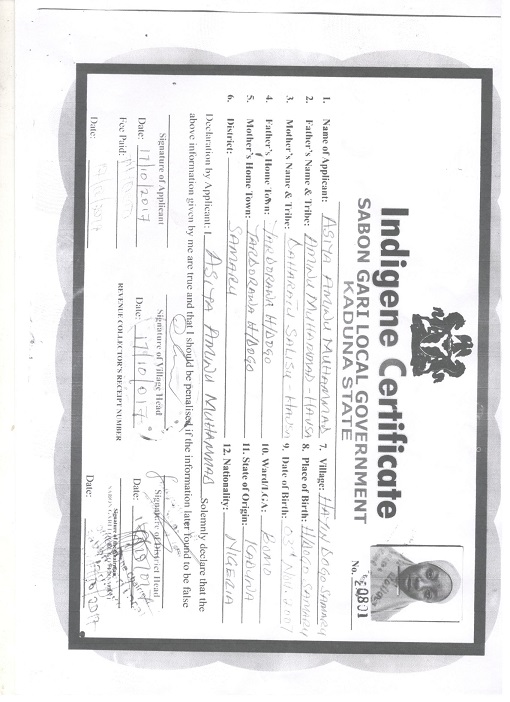 Indigene Certificate
SABON GARI LOCAL GOVERNMENT
KADUNA STATE
No. 20801
1. Name of Applicant: ASIYA AMINU MUHAMMAD
2. Father's Name & Tribe: AMINU MUHAMMAD HAUSA
3. Mother's Name & Tribe: SALISU HAUSA
4. Father's Home Town: YARDORAWA H/DOGO
5. Mother's Home Town: YARDORAWA H/DOGO
6. District: SAMARU
7. Village: HAYIN DOGO SAMARU
8. Place of Birth: H/DOGO SAMARU
9. Date of Birth:
10. Ward/LGA:
11. State of Origin: KADUNA
12. Nationality: NIGERIA
Declaration by Applicant: I ASIYA AMINU MUHAMMAD Solemnly declare that the
above information given by me are true and that I should be penalised if the information later found to be false
Signature of Applicant
Signature of Village Head
Signature of District Head
Date: 17/10/2017
Date: 17/10/017
Date:
Fee Paid:
REVENUE COLLECTOR'S RECEIPT NUMBER
Date:
Date: